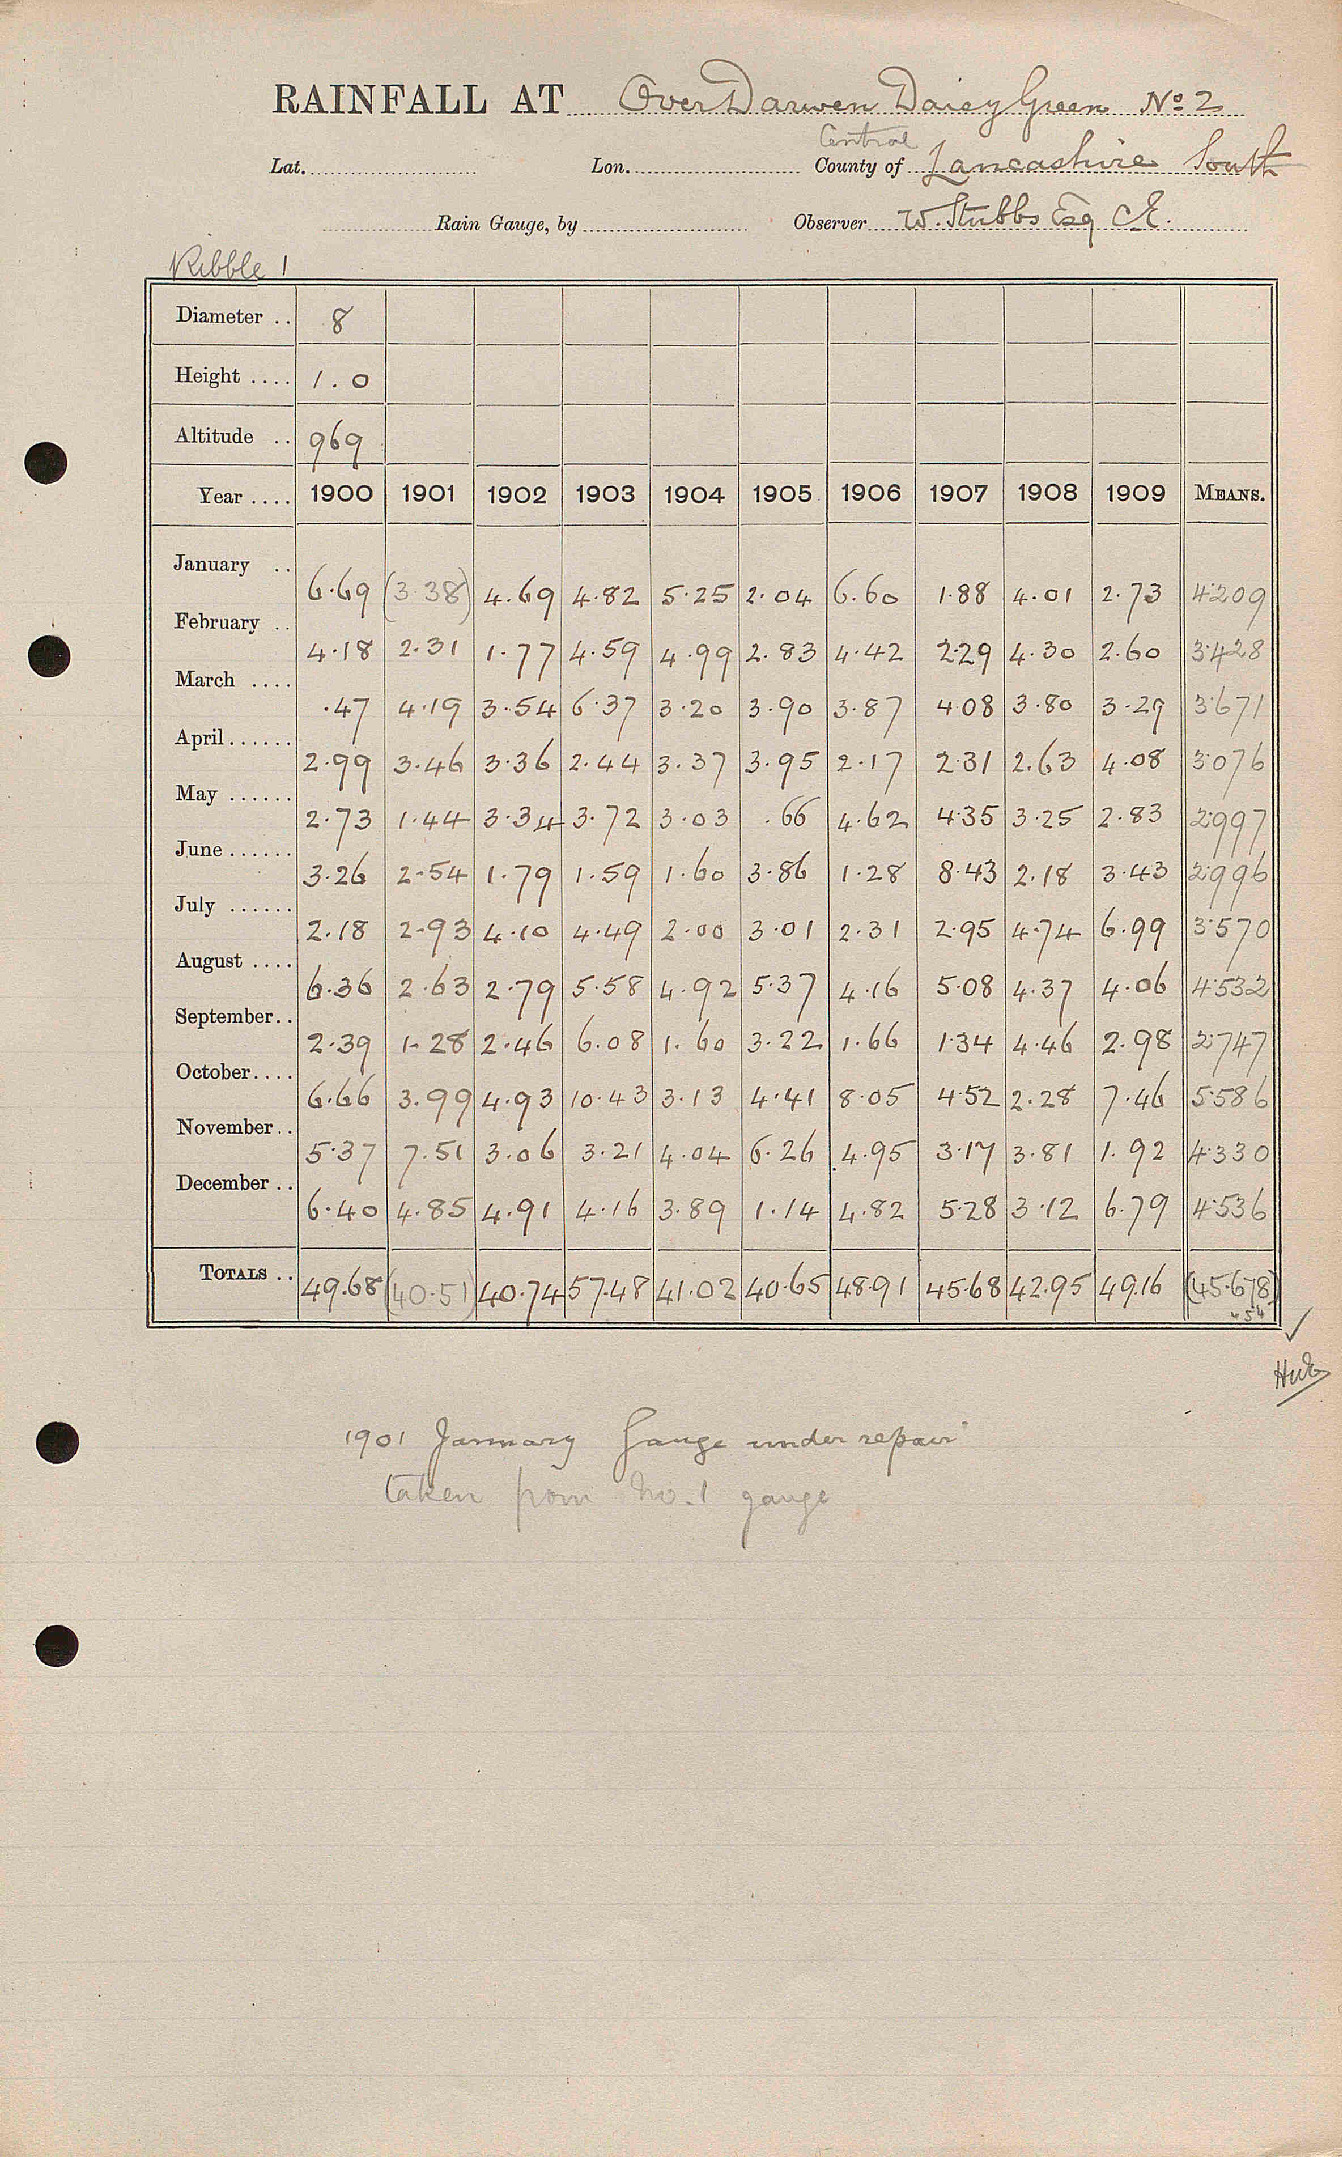 RAINFALL AT Over Darwen Daisy Green No. 2
Central
Lat. Lon. County of Lancashire South
Rain Gauge, by Observer W. Stubbs Esq C.E.
Ribble 1
Diameter .. 8
Height .... 1.0
Altitude .. 969
Year .... 1900 1901 1902 1903 1904 1905 1906 1907 1908 1909 MEANS.
January .. 6.69 (3.38) 4.69 4.82 5.25 2.04 6.60 1.88 4.01 2.73 4.209
February .. 4.18 2.31 1.77 4.59 4.99 2.83 4.42 2.29 4.30 2.60 3.428
March .... .47 4.19 3.54 6.37 3.20 3.90 3.87 4.08 3.80 3.29 3.671
April ...... 2.99 3.46 3.36 2.44 3.37 3.95 2.17 2.31 2.63 4.08 3.076
May ...... 2.73 1.44 3.34 3.72 3.03 .66 4.62 4.35 3.25 2.83 2.997
June ...... 3.26 2.54 1.79 1.59 1.60 3.86 1.28 8.43 2.18 3.43 2.996
July ...... 2.18 2.93 4.10 4.49 2.00 3.01 2.31 2.95 4.74 6.99 3.570
August .... 6.36 2.63 2.79 5.58 4.92 5.37 4.16 5.08 4.37 4.06 4.532
September.. 2.39 1.28 2.46 6.08 1.60 3.22 1.66 1.34 4.46 2.98 2.747
October.... 6.66 3.99 4.93 10.43 3.13 4.41 8.05 4.52 2.28 7.46 5.586
November.. 5.37 7.51 3.06 3.21 4.04 6.26 4.95 3.17 3.81 1.92 4.330
December .. 6.40 4.85 4.91 4.16 3.89 1.14 4.82 5.28 3.12 6.79 4.536
TOTALS .. 49.68 (40.51) 40.74 57.48 41.02 40.65 48.91 45.68 42.95 49.16 (45.678)
1901 January Gauge under repair
taken from No. 1 gauge